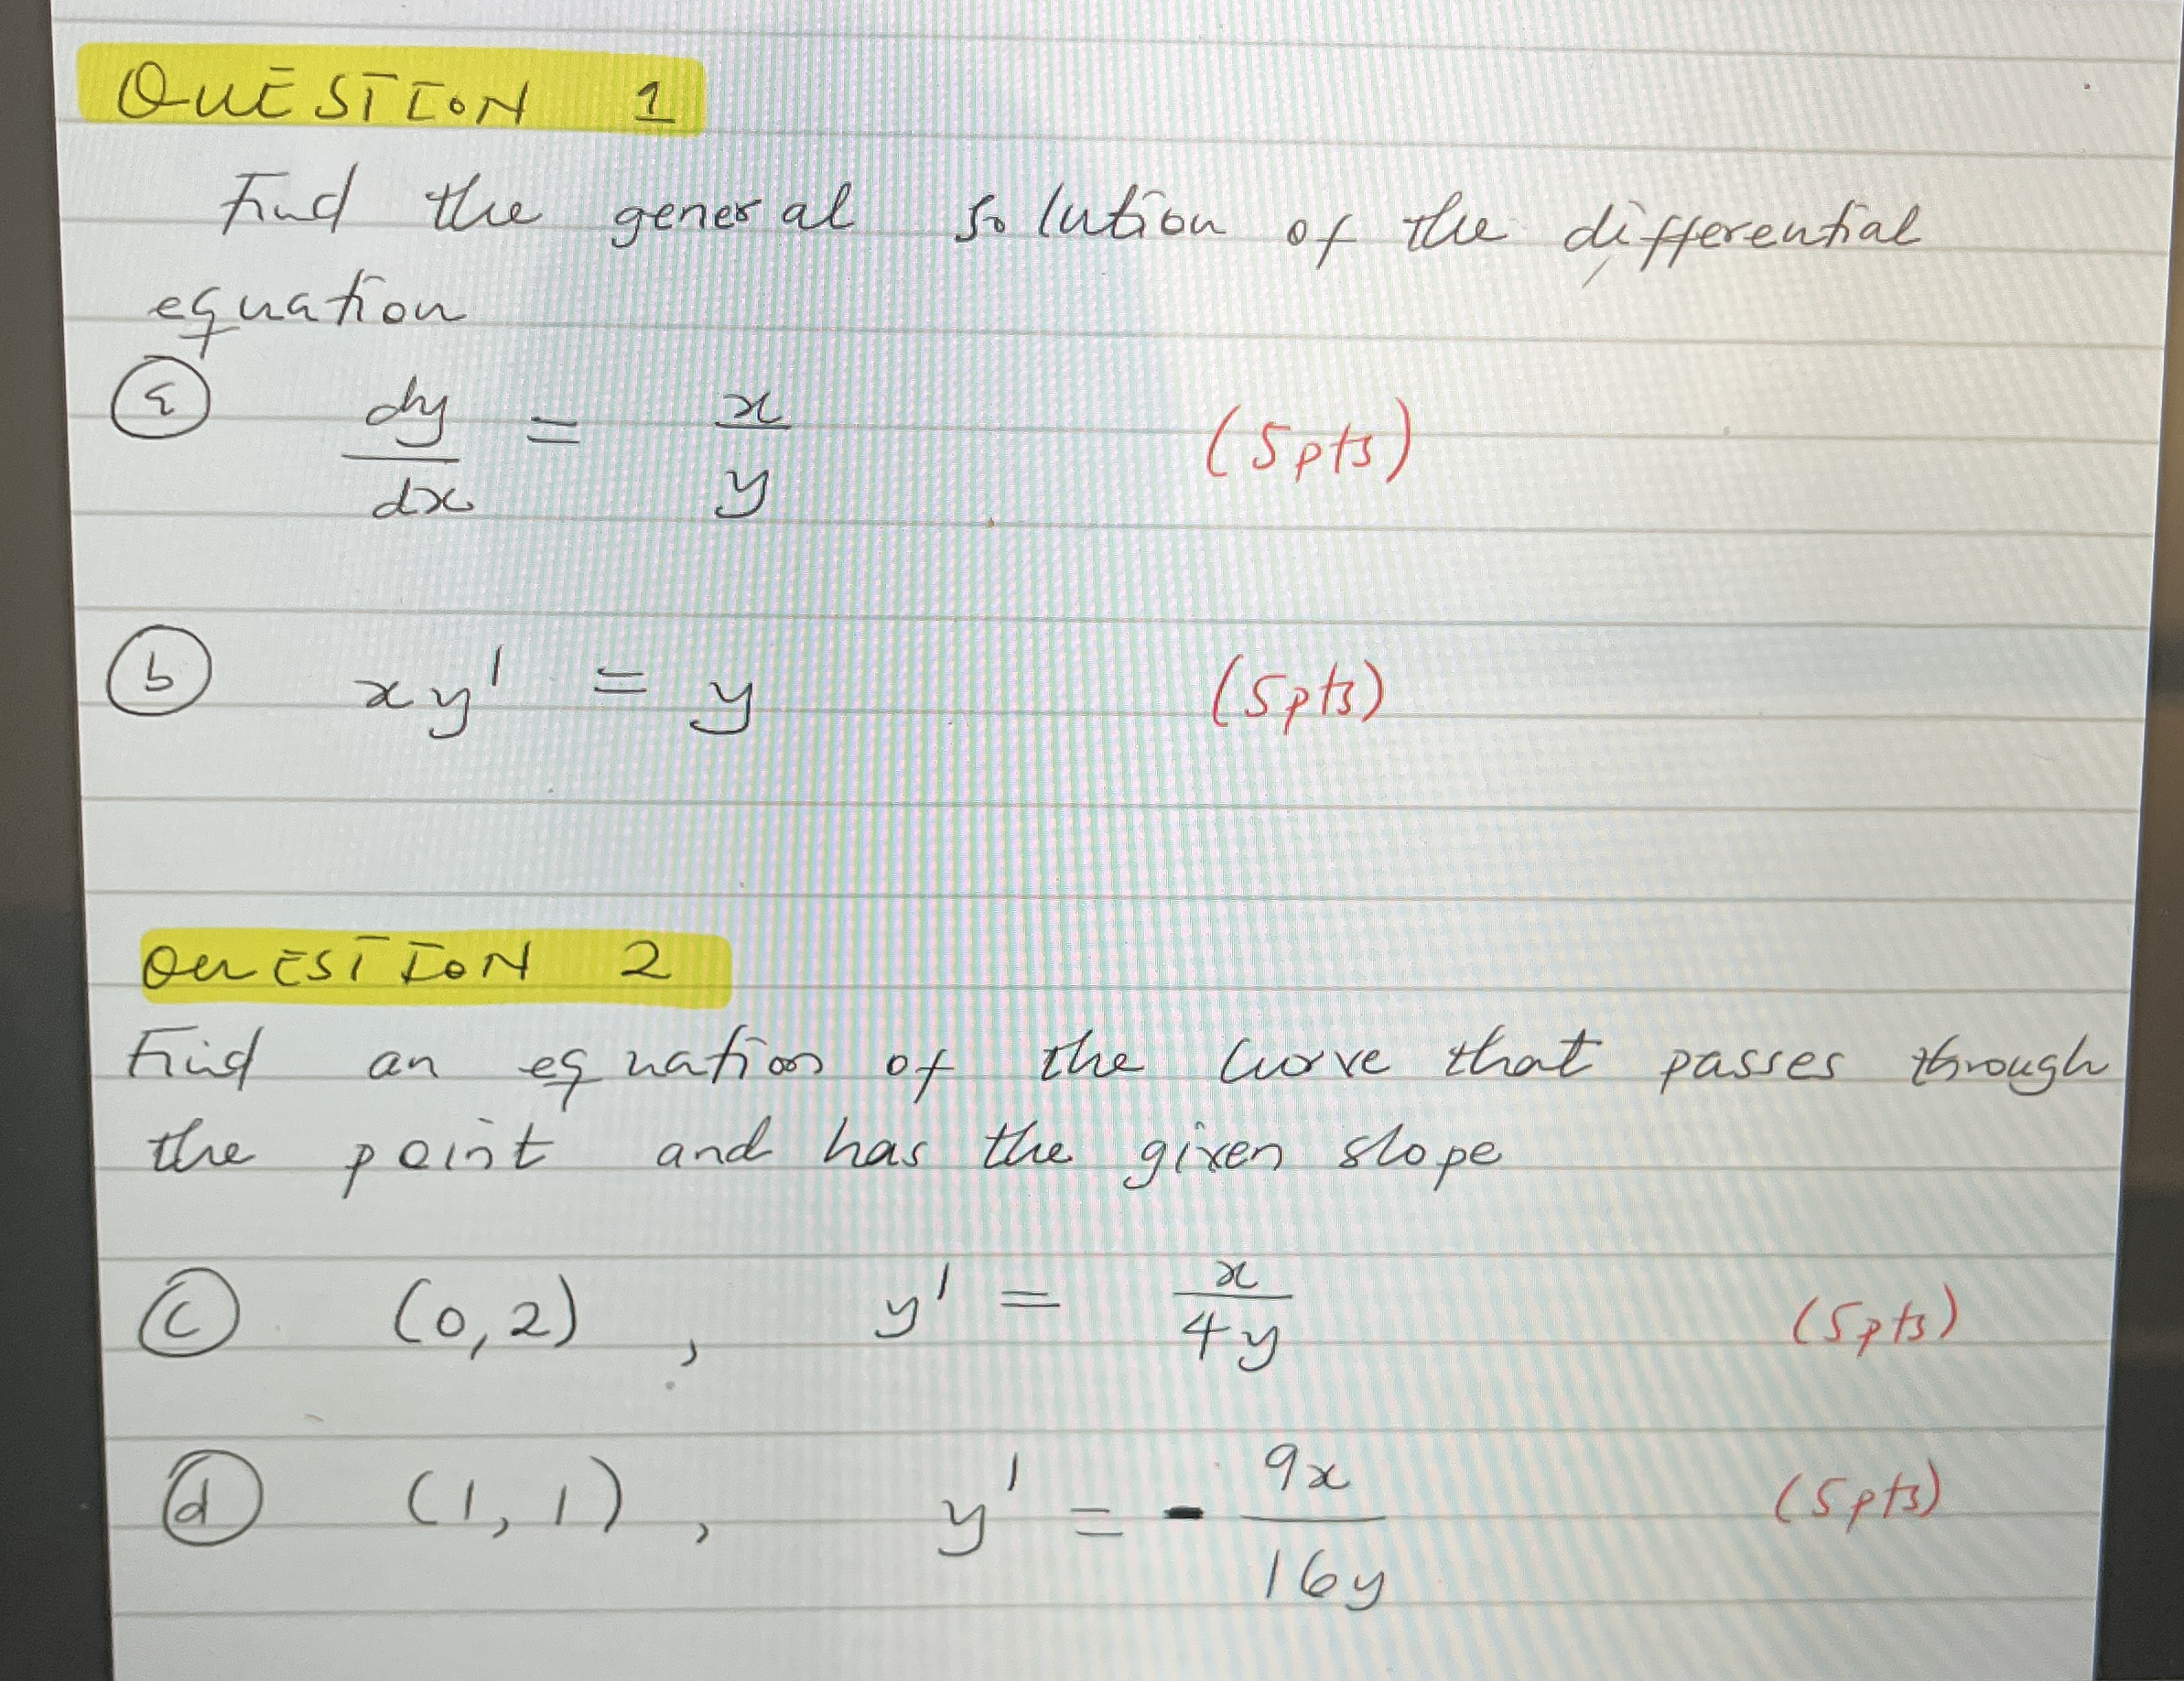 QUESTION 1
Find the general solution of the differential
equation
(a) dy/dx = x/y (5pts)
(b) xy' = y (5pts)
QUESTION 2
Find an equation of the curve that passes through
the point and has the given slope
(c) (0,2) , y' = x/4y (5pts)
(d) (1,1) , y' = - 9x/16y (5pts)